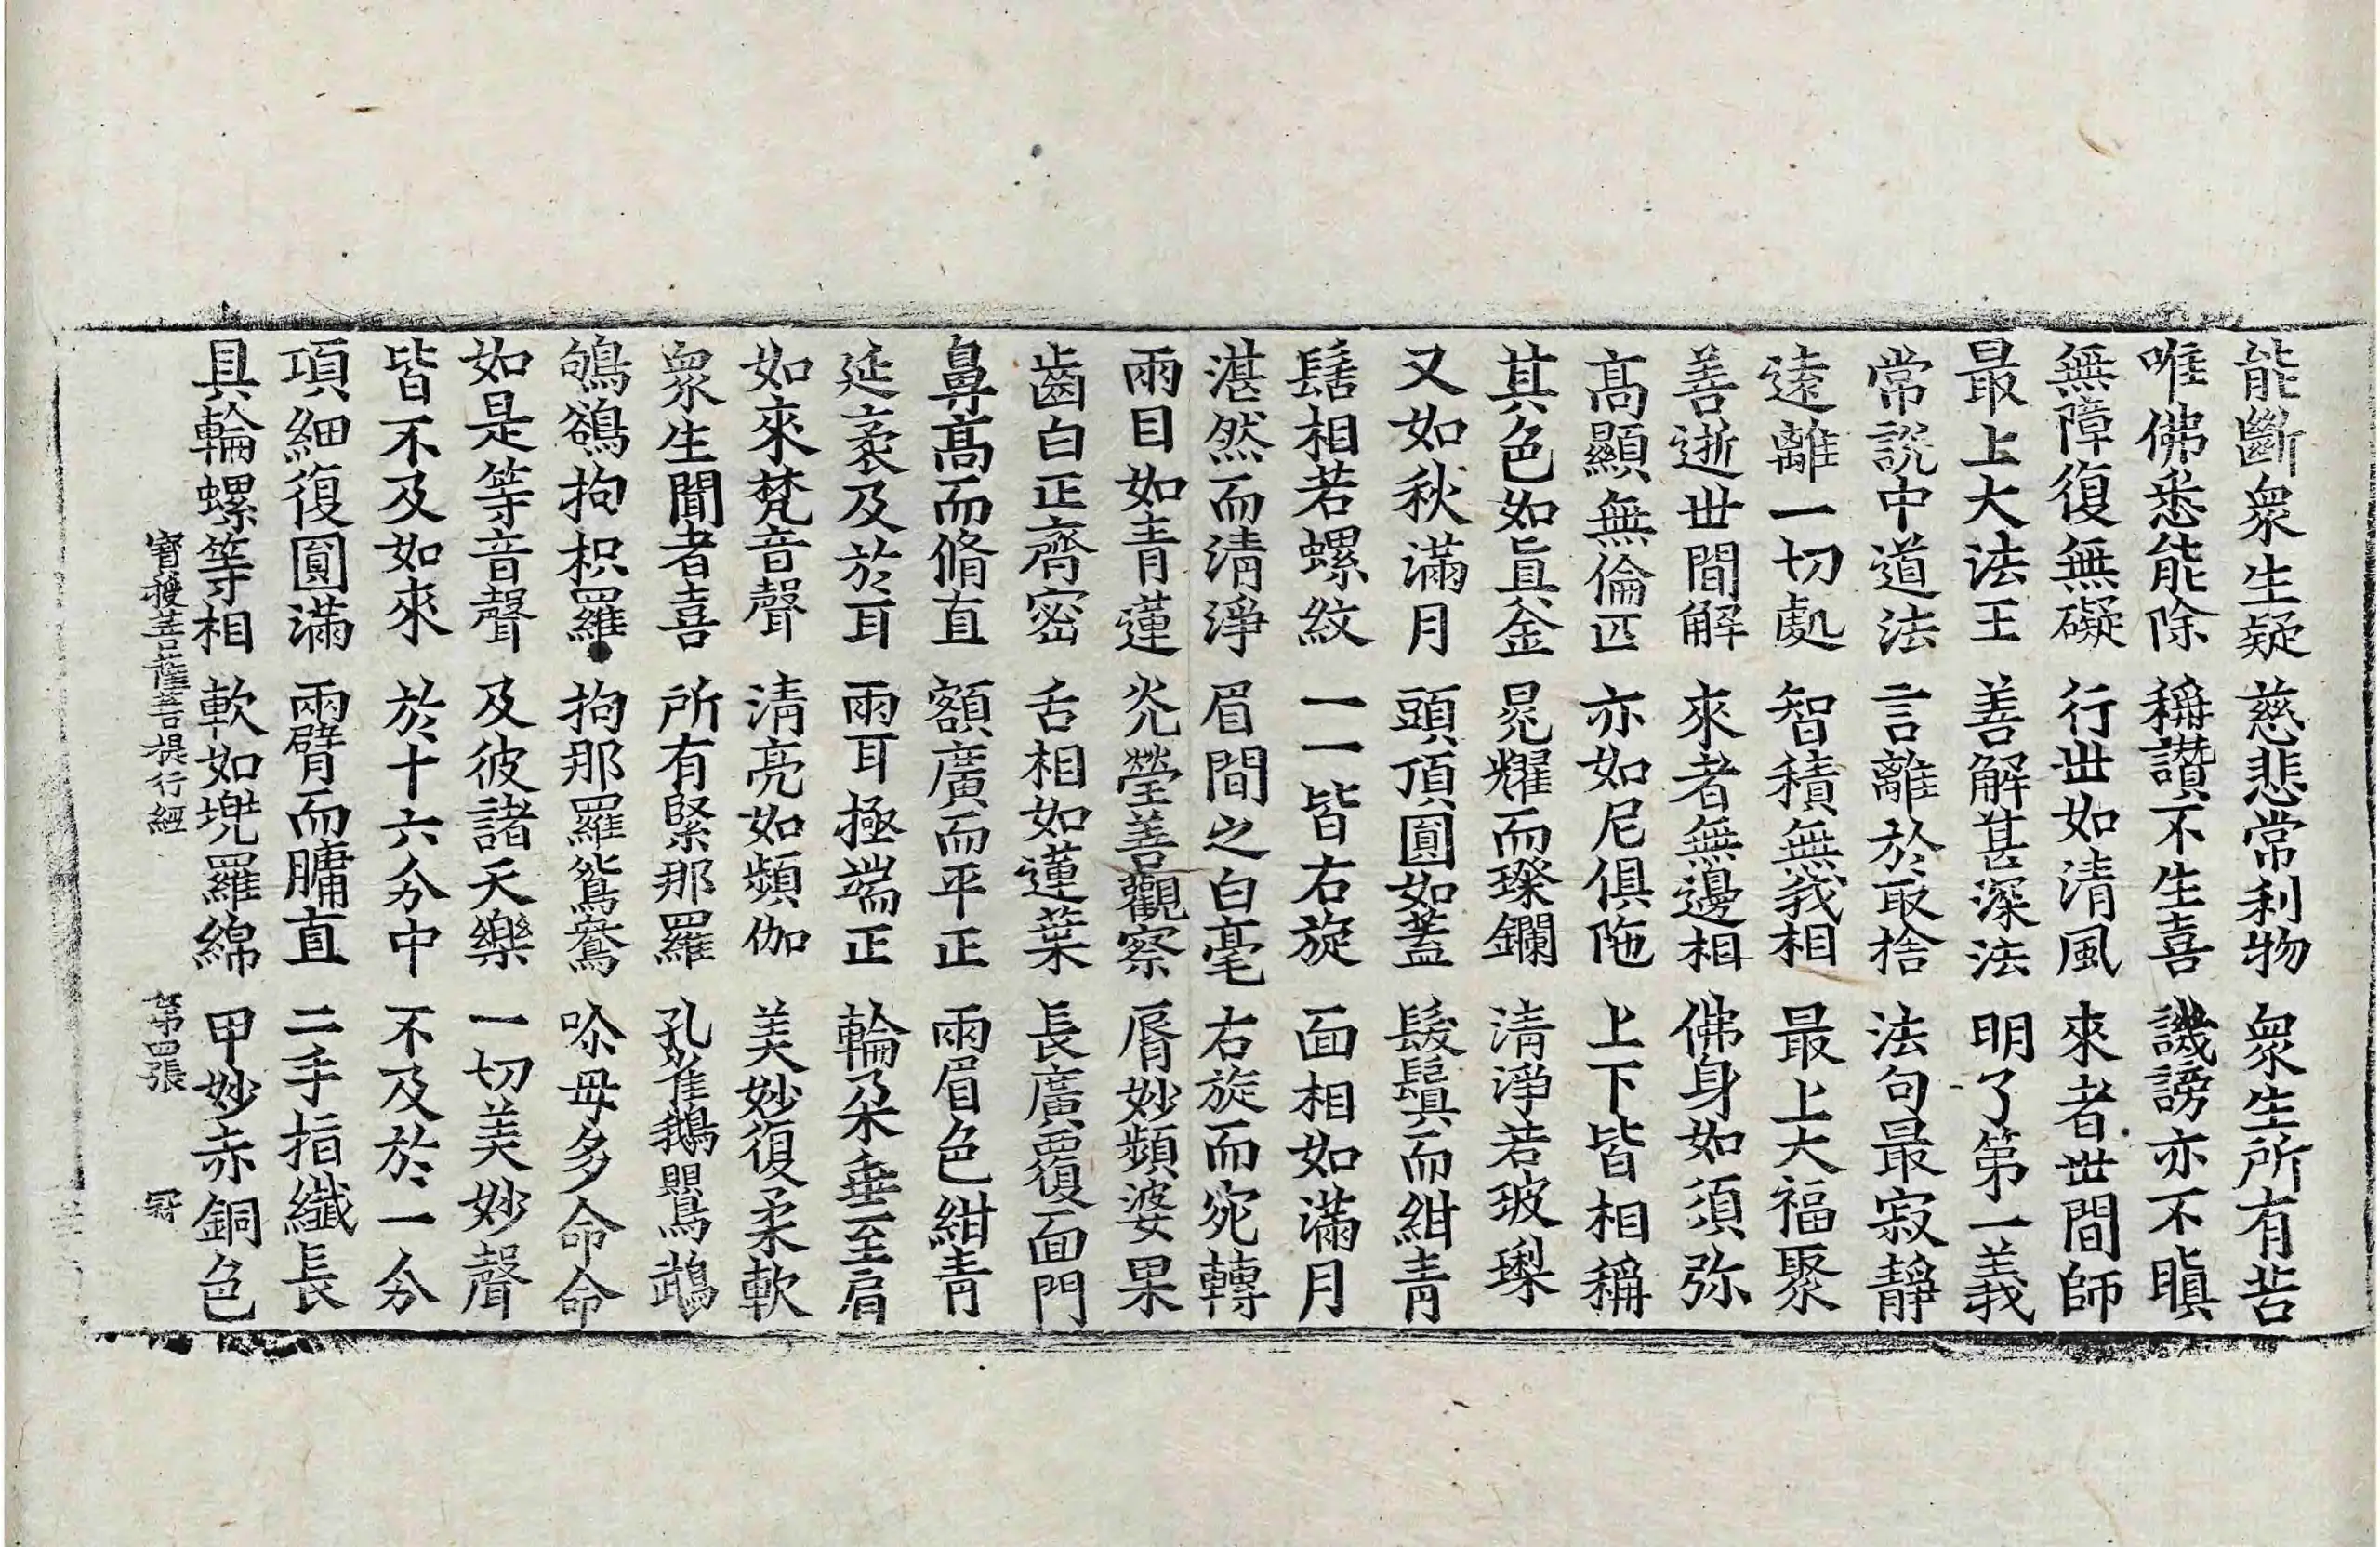 能斷衆生疑 慈悲常利物 衆生所有苦
唯佛悉能除 稱讚不生喜 譏謗亦不瞋
無障復無礙 行世如清風 來者世間師
最上大法王 善解甚深法 明了第一義
常說中道法 言離於取捨 法句最寂靜
逺離一切處 智積無我相 最上大福聚
善逝世間解 來者無邊相 佛身如須弥
髙顯無倫匹 亦如尼俱陁 上下皆相稱
其色如眞金 晃耀而璨鑭 清淨若玻瓈
又如秋滿月 頭頂圓如蓋 髮鬒而紺青
髻相若螺紋 一一皆右旋 面相如滿月
湛然而清淨 眉間之白毫 右旋而宛轉
兩目如青蓮 光瑩善觀察 脣妙頻婆果
齒白正齊密 舌相如蓮葉 長廣覆面門
鼻髙而脩直 額廣而平正 兩眉色紺青
延袤及於耳 兩耳極端正 輪朶垂至肩
如來梵音聲 清亮如頻伽 美妙復柔軟
衆生聞者喜 所有緊那羅 孔雀鵝鸚鵡
鳩鵒拘枳羅 拘那羅鴛鴦 嘇毋多命命
如是等音聲 及彼諸天樂 一切美妙聲
皆不及如來 於十六分中 不及於一分
項細復圓滿 兩臂而牗直 二手指纎長
具輪螺等相 軟如堄羅綿 甲妙赤銅色
寳授菩薩菩提行經 第四張 冠